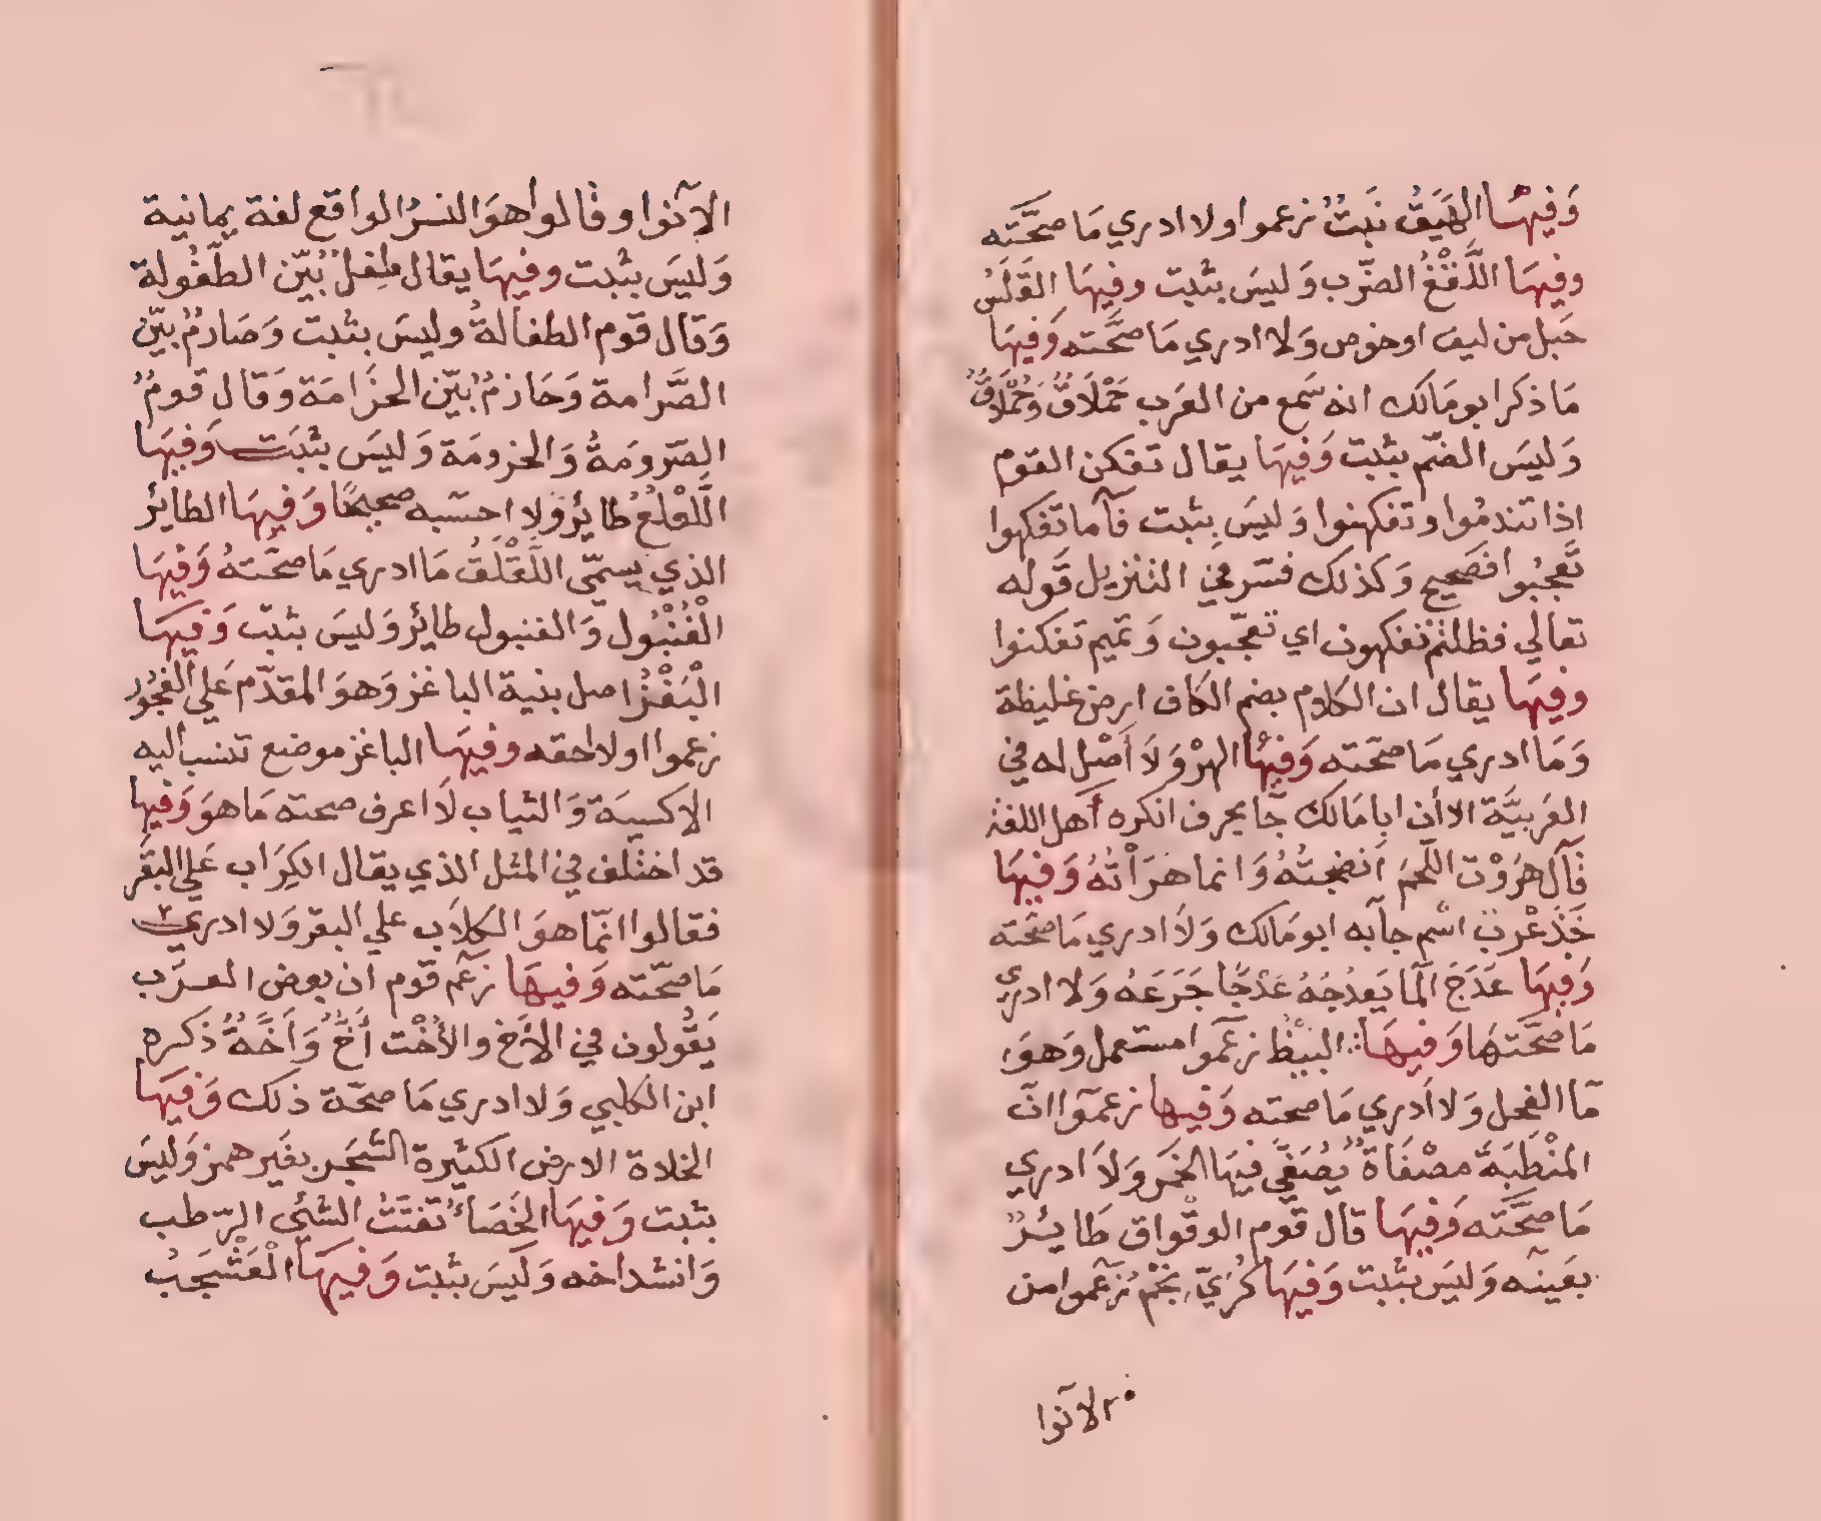 وَفيهَا الهَيَفُ نَبتٌ زعموا ولا ادري مَا صحَّته
وفيهَا اللَّقْعُ الضّرب وَليسَ بثبت وفيهَا القَلَسُ
حَبل من ليف او خوص وَلا ادري مَا صحَّته وَفيهَا
مَا ذكرا بو مَالك انه سَمع من العَرب حَمْلَاقٌ وَحُمْلَاقٌ
وَليسَ الضّم بثبت وَفيهَا يقال تفكن القوم
اذا تندمُوا وتفكهنوا وَليسَ بثبت فآما تفكهوا
تَعجبُوا فصَحيح وَكذلك فسّر في التنزيل قَوله
تعالي فظلتم تفكهون اي تعجّبون وَتميم تفكنوا
وفيهَا يقال ان الكلام بضم الكاف ارض غليظة
وَمَا ادري مَا صحّته وَفيهَا الهرْوَ لَا أصْل له في
العَربيَّة الا أن ابا مَالك جَا بحرف انكره أهل اللغة
قَآل هرَوْت اللّحمَ انضجتُهُ وَانما هَرَأتُهُ وَفيهَا
خَذْعْرَب اسْم جآبه ابو مَالك وَلَا ادري مَا صحّته
وَفيهَا عَدَجَ الَما يَعدُجُهُ عَدْجًا جَرَعَهُ وَلا ادري
مَا صحَّتهَا وَفيهَا البيظُ زعَموا مستعمل وَهوَ
مَآ الفحل وَلا ادري مَا صحته وَفيهَا زعمَوا انّ
المنْطَبَةَ مصْفَاةٌ يُصَفَّى فيهَا الخمَر وَلَا ادري
مَا صحَّته وَفيهَا قال قوم الوقواق طَايئرٌ
بعَينه وَليسَ بثبت وَفيهَا كُرَيّ نجْمٌ زعَموا من
الآنوا
الآنوا وقالوا هوَ النسرُ الواقع لغة يمانية
وَليسَ بثبت وفيهَا يقال طِفلٌ بُيّن الطفُولة
وَقال قوم الطفالةُ وليسَ بثبت وَصَارمٌ بيّن
الصَّرامة وَحَازمٌ بيّن الحزَامَة وَقال قومٌ
الصّرومَةُ وَالحزومَة وَليسَ بثبَت وَفيهَا
اللَّعْلَعُ طايئر وَلا احسَبه صحيحًا وَفيهَا الطايئر
الذي يسمّى اللَّقْلَقُ مَا ادري مَا صحَّتهُ وَفيهَا
الْقُنْبُول وَالقنبول طايئر وَليسَ بثبت وَفيهَا
الْبَغْزُ اصل بنية الباغز وَهوَ المقدّم عَلي الفجُور
زعموا ولا احقه وفيهَا الباغز موضع تنسب اليه
الاكسيَة وَالثياب لَا اعرف صحته مَا هوَ وَفيها
قد اختلف في المثل الذي يقال الكِرَاب عَلي البقَر
فقالوا انمّا هوَ الكلاَب علي البقر وَلا ادري
مَا صحّته وَفيهَا زعَم قَوم ان بعض العرَب
يَقُولون في الأخ والأخْت أخٌّ وَأَخَّةٌ ذكره
ابن الكلبي وَلا ادري مَا صحّة ذلك وَفيهَا
الخلاة الارض الكثيرة الشجَر بغَير همز وَليسَ
بثبت وَفيهَا الخَصَاءُ تفتّتُ الشئي الرّطب
وَانشداخه وَلَيسَ بثبت وَفيهَا الْعَشْجَبُ